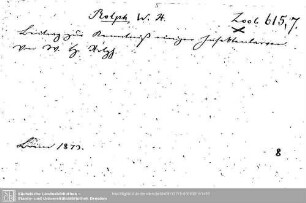 Rolph, W. H. Zool. 615,7.
Beitrag zur Kenntniß einiger Insektenlarven
Von W. H.
Bonn 1873.
8
Sächsische Landesbibliothek -
Staats- und Universitätsbibliothek Dresden